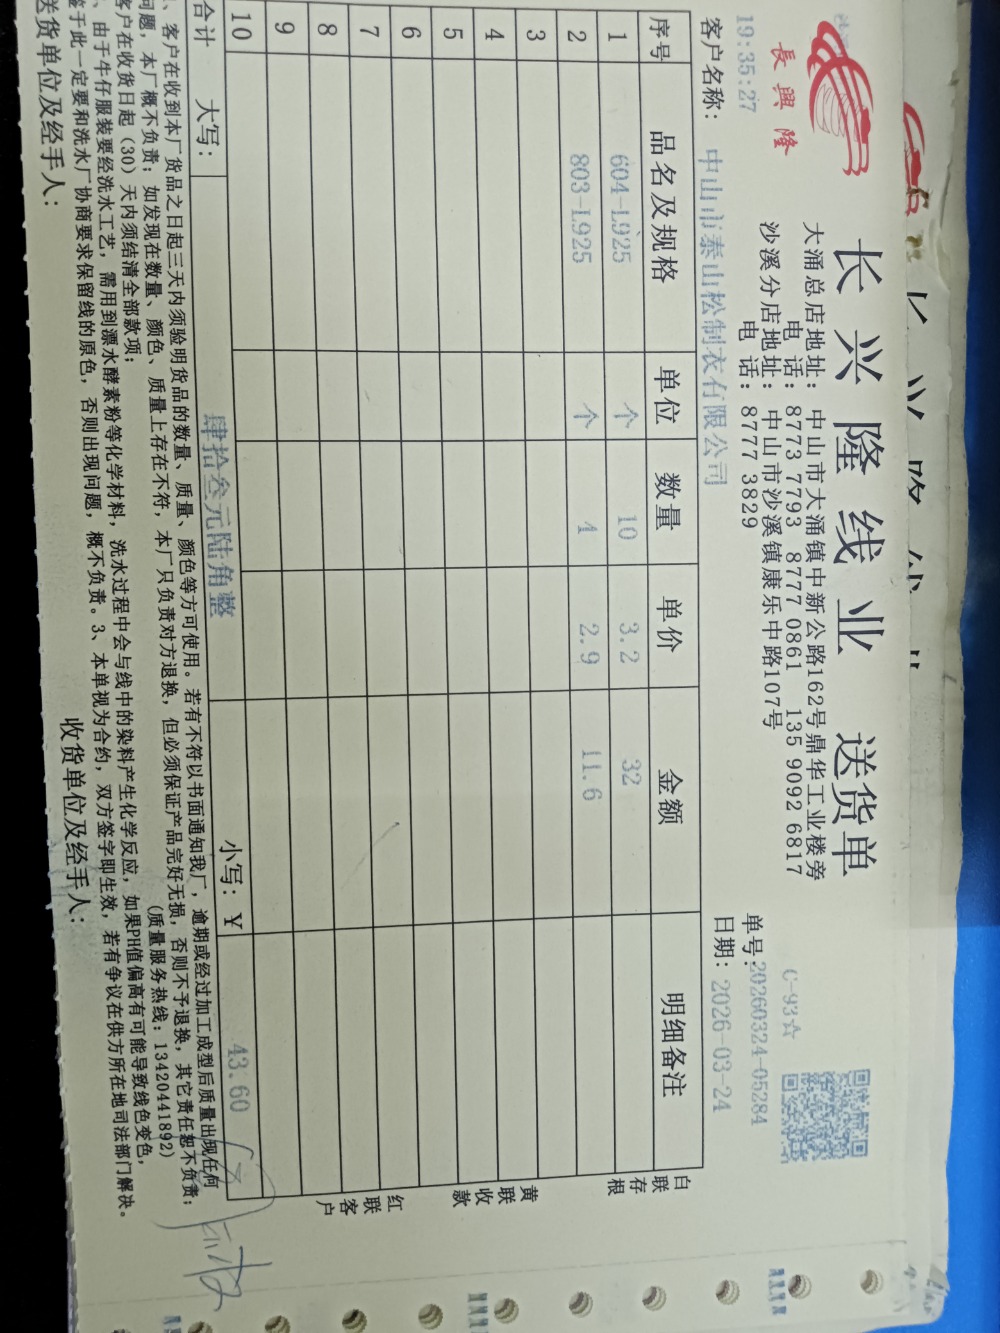 長興隆
长兴隆线业 送货单
大涌总店地址: 中山市大涌镇中新公路162号鼎华工业楼旁
电 话: 8773 7793 8777 0861 135 9092 6817
沙溪分店地址: 中山市沙溪镇康乐中路107号
电 话: 8777 3829
C-93☆
单号:20260324-05284
19:35:27
日期: 2026-03-24
客户名称: 中山市泰山松制衣有限公司
序号 品名及规格 单位 数量 单价 金额 明细备注
1 604-L925 个 10 3.2 32
2 803-L925 个 4 2.9 11.6
3
4
5
6
7
8
9
10
合计 大写: 肆拾叁元陆角整 小写: ¥ 43.60
白联存根
黄联收款
红联客户
、客户在收到本厂货品之日起三天内须验明货品的数量、质量、颜色等方可使用。若有不符以书面通知我厂,逾期或经过加工成型后质量出现任何
问题,本厂概不负责;如发现在数量、颜色、质量上存在不符,本厂只负责对方退换,但必须保证产品完好无损,否则不予退换,其它责任恕不负责;
客户在收货日起（30）天内须结清全部款项; (质量服务热线: 13420441892)
、由于牛仔服装要经洗水工艺,需用到漂水酵素粉等化学材料,洗水过程中会与线中的染料产生化学反应,如果PH值偏高有可能导致线色变色,
鉴于此一定要和洗水厂协商要求保留线的原色,否则出现问题,概不负责。3、本单视为合约,双方签字即生效,若有争议在供方所在地司法部门解决。
送货单位及经手人: 收货单位及经手人: